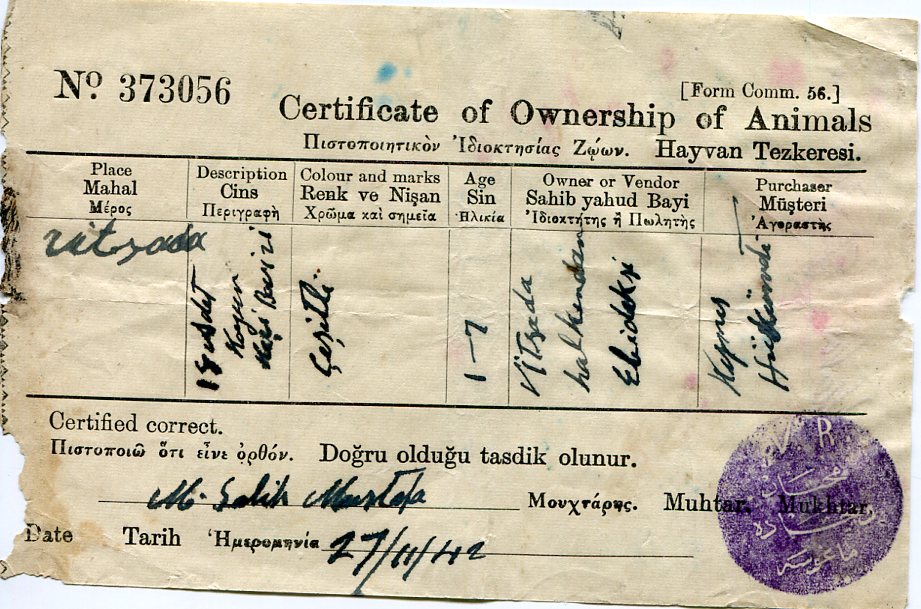 Nº 373056
[Form Comm. 56.]
Certificate of Ownership of Animals
Πιστοποιητικὸν Ἰδιοκτησίας Ζῴων. Hayvan Tezkeresi.
Place
Mahal
Μέρος
Description
Cins
Περιγραφὴ
Colour and marks
Renk ve Nişan
Χρῶμα καὶ σημεῖα
Age
Sin
Ἡλικία
Owner or Vendor
Sahib yahud Bayi
Ἰδιοκτήτης ἢ Πωλητὴς
Purchaser
Müşteri
Ἀγοραστὴς
Vitsada
18 aded
Koyun
Keçi
Çeşitli
1-7
Vitsada
halkından
Kıbrıs
Hükümeti
Certified correct.
Πιστοποιῶ ὅτι εἶνε ὀρθόν. Doğru olduğu tasdik olunur.
M. Salih Mustafa
Μουχτάρης. Muhtar. Mukhtar,
Date Tarih Ἡμερομηνία 27/11/42
V R